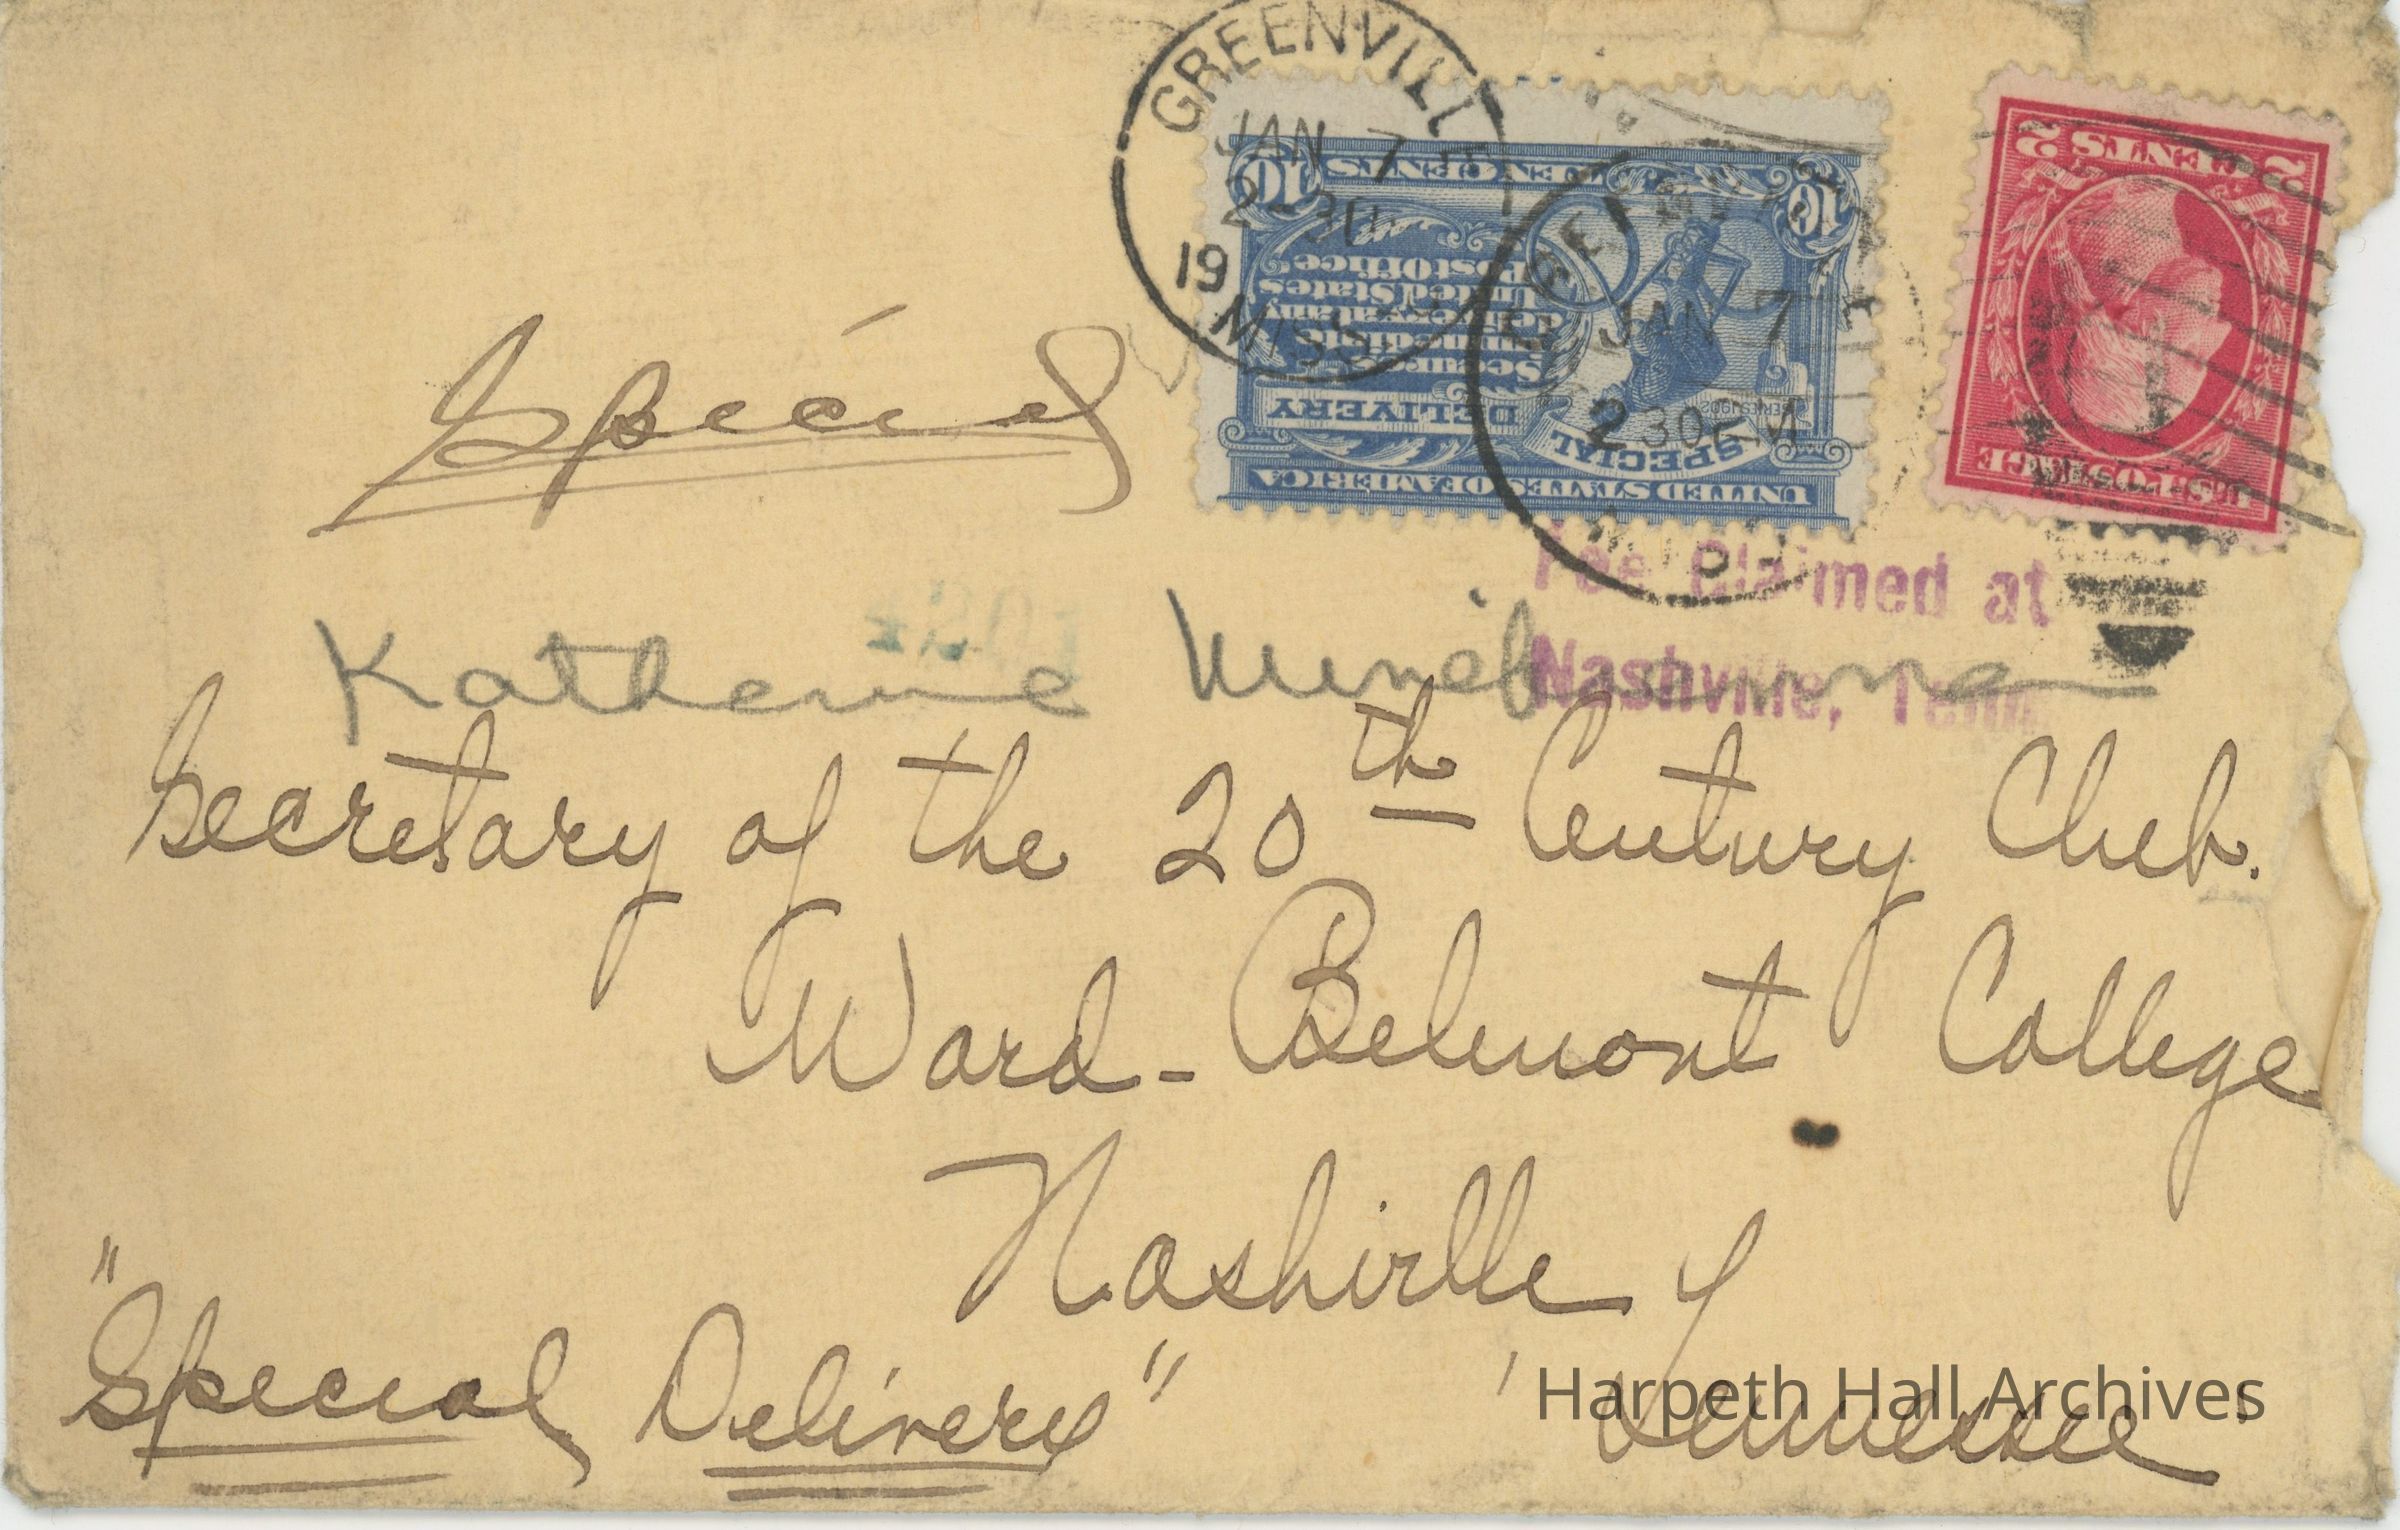 GREENVILL
JAN 7
2-30
19
MISS
TEN CENTS
10 10
Secures
immediate
delivery at any
United States
Post Office.
SPECIAL DELIVERY
SERIES 1902
UNITED STATES OF AMERICA
JAN 7
2 30 PM
2 CENTS 2
U.S. POSTAGE
Special
Fee Claimed at
Nashville, Tenn.
Katherine
Secretary of the 20th Century Club.
Ward-Belmont College
Nashville,
Tennessee
"Special Delivery"
Harpeth Hall Archives